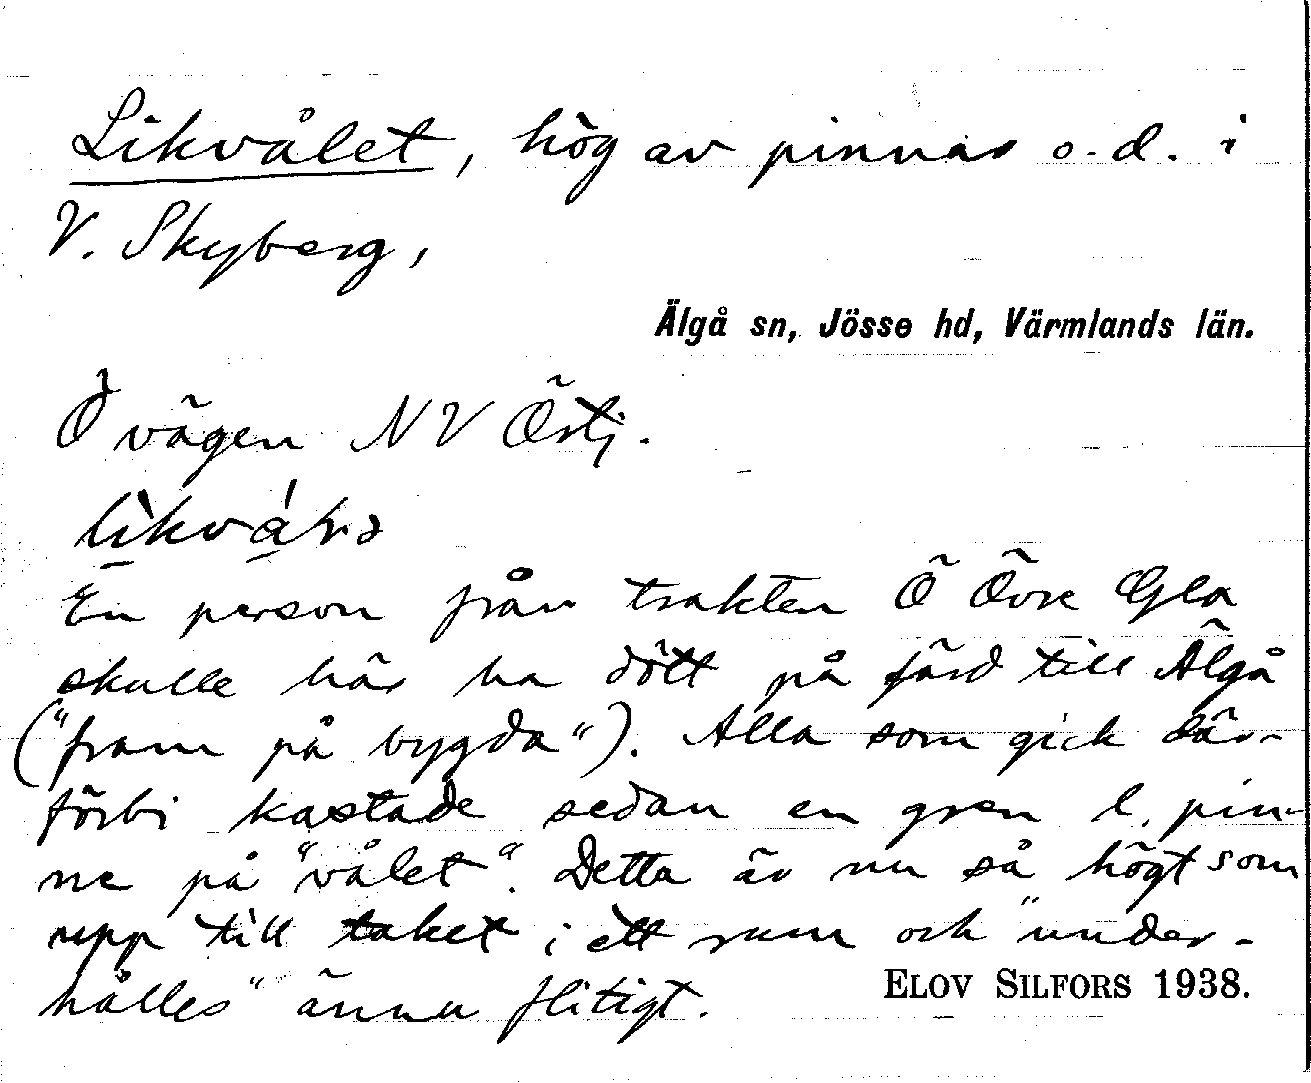 Likvålet, hög av pinnar o. d. i
V. Skyberg,
Älgå sn, Jösse hd, Värmlands län.
Ö vägen NV Östj.
En person från trakten Ö Övre Gla
skulle här ha dött på färd till Älgå
("fram på bygda"). Alla som gick där-
förbi kastade sedan en gren l. pin-
ne på "vålet". Detta är nu så högt som
upp till taket i ett rum och "under-
hålles" ännu flitigt.
ELOV SILFORS 1938.